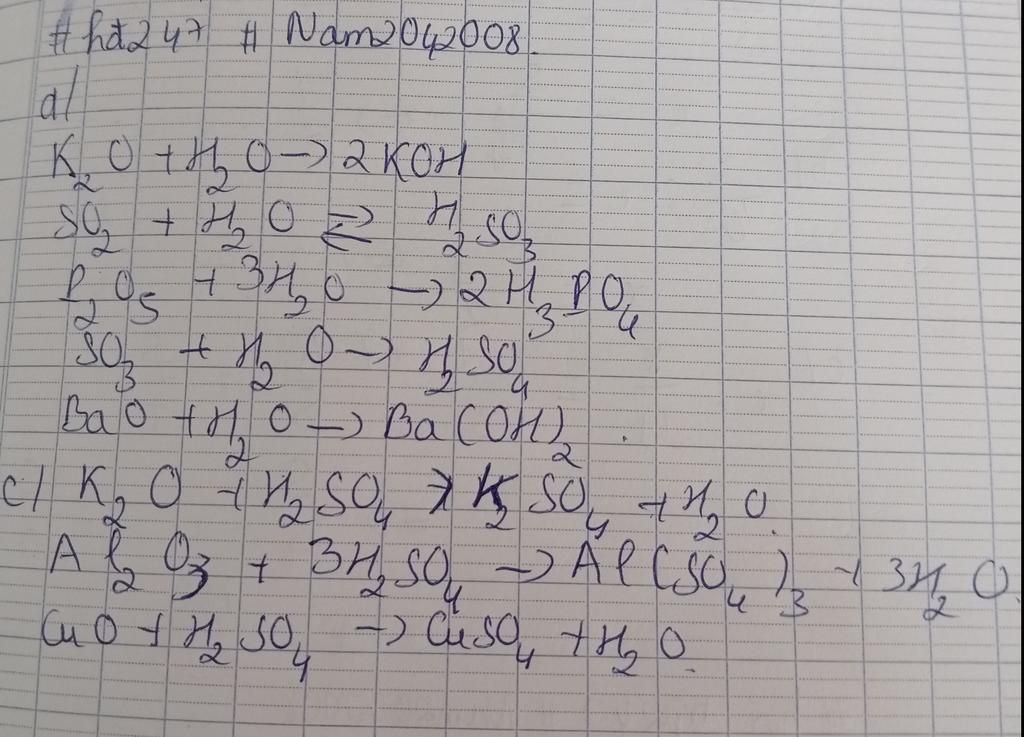 # hđ247 # Nam2042008.
a/
K₂O + H₂O → 2KOH
SO₂ + H₂O ⇌ H₂SO₃
P₂O₅ + 3H₂O → 2H₃PO₄
SO₃ + H₂O → H₂SO₄
BaO + H₂O → Ba(OH)₂.
c/ K₂O + H₂SO₄ → K₂SO₄ + H₂O.
Al₂O₃ + 3H₂SO₄ → Al(SO₄)₃ + 3H₂O.
CuO + H₂SO₄ → CuSO₄ + H₂O.